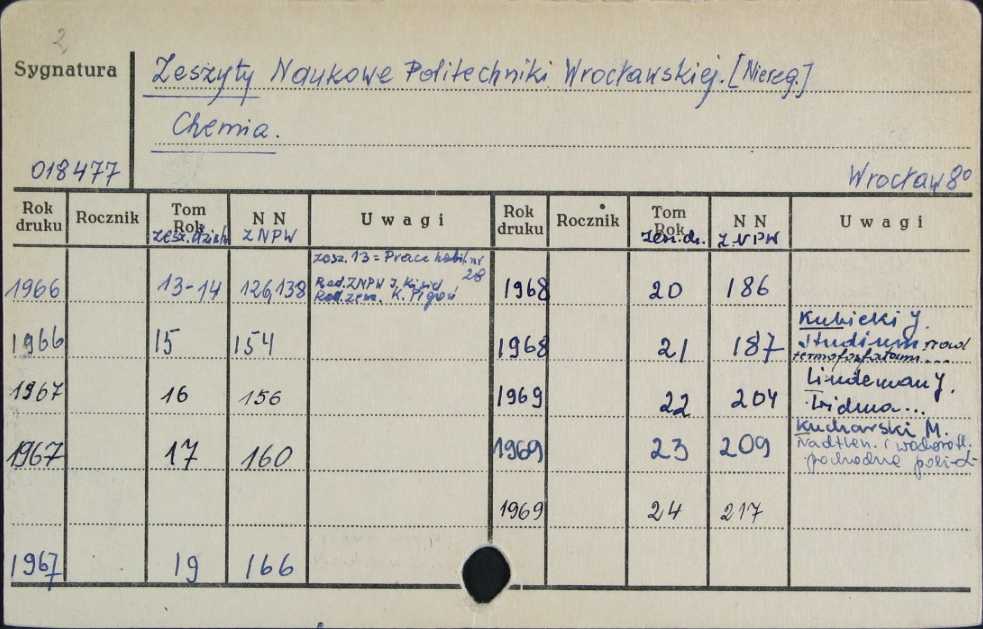 2
Sygnatura
Zeszyty Naukowe Politechniki Wrocławskiej. [Niereg.]
Chemia.
018477
Wrocław 8°
Rok druku Rocznik Tom Rok Zesz. N N ZNPW Uwagi Rok druku Rocznik Tom Rok Zesz. N N ZNPW Uwagi
zesz. 13 = Prace habil. nr 28
1966 13-14 126,138 Red. ZNPW 1968 20 186
Red. zesz. K. Pigoń
Kubicki J.
1966 15 154 1968 21 187 Studium
termofosfatami...
Lindeman J.
1967 16 156 1969 22 204
Kucharski M.
1967 17 160 1969 23 209 Nadtlen. i wodorotl.
pochodne
1969 24 217
1967 19 166